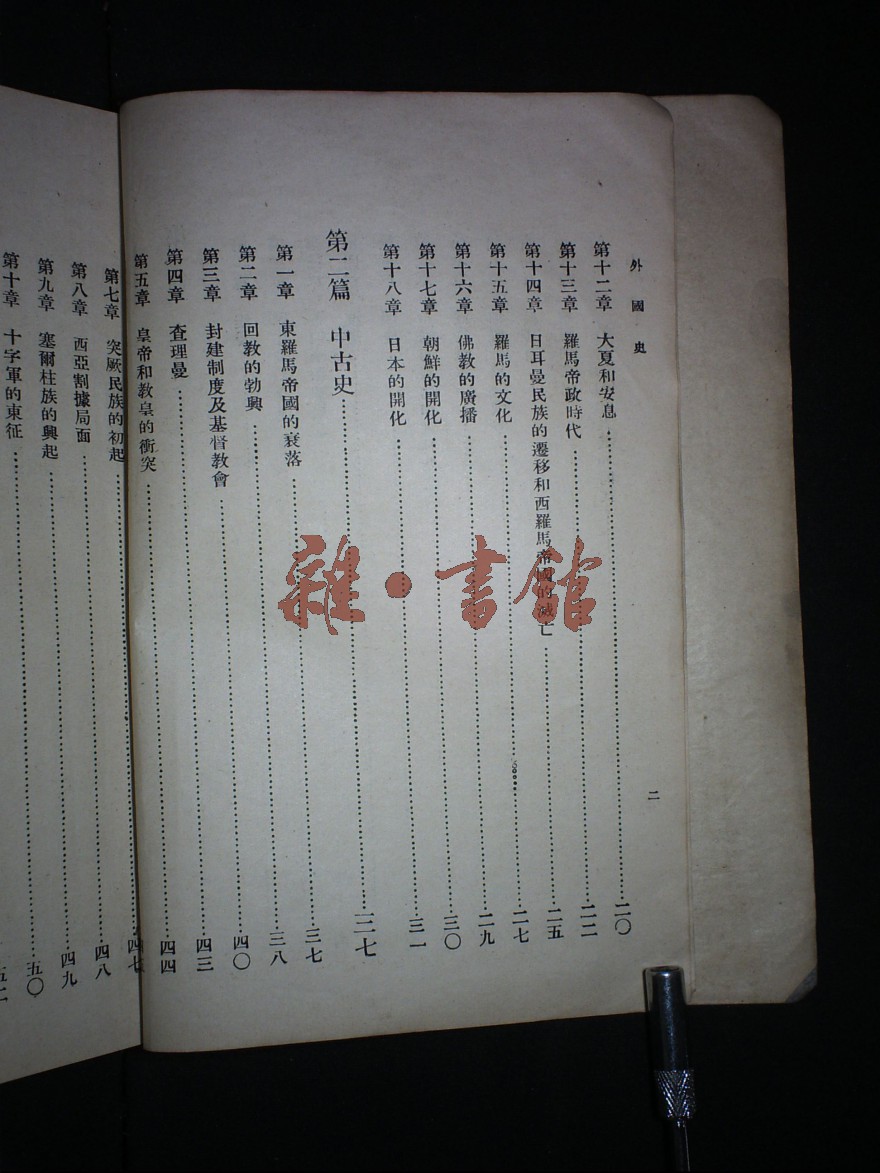 外國史
二
第十二章 大夏和安息……二〇
第十三章 羅馬帝政時代……二二
第十四章 日耳曼民族的遷移和西羅馬帝國的滅亡……二五
第十五章 羅馬的文化……二七
第十六章 佛教的廣播……二九
第十七章 朝鮮的開化……三〇
第十八章 日本的開化……三一
第二篇 中古史……三七
第一章 東羅馬帝國的衰落……三七
第二章 回教的勃興……三八
第三章 封建制度及基督教會……四〇
第四章 查理曼……四三
第五章 皇帝和教皇的衝突……四四
第七章 突厥民族的初起……四七
第八章 西亞割據局面……四八
第九章 塞爾柱族的興起……四九
第十章 十字軍的東征……五〇
雜·書館